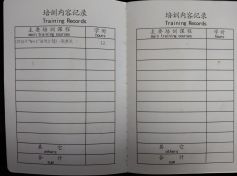 培训内容记录
Training Records
主要培训课程
main training courses
学时
hours
12
其它
others
合计
sum
培训内容记录
Training Records
主要培训课程
main training courses
学时
hours
其它
others
合计
sum